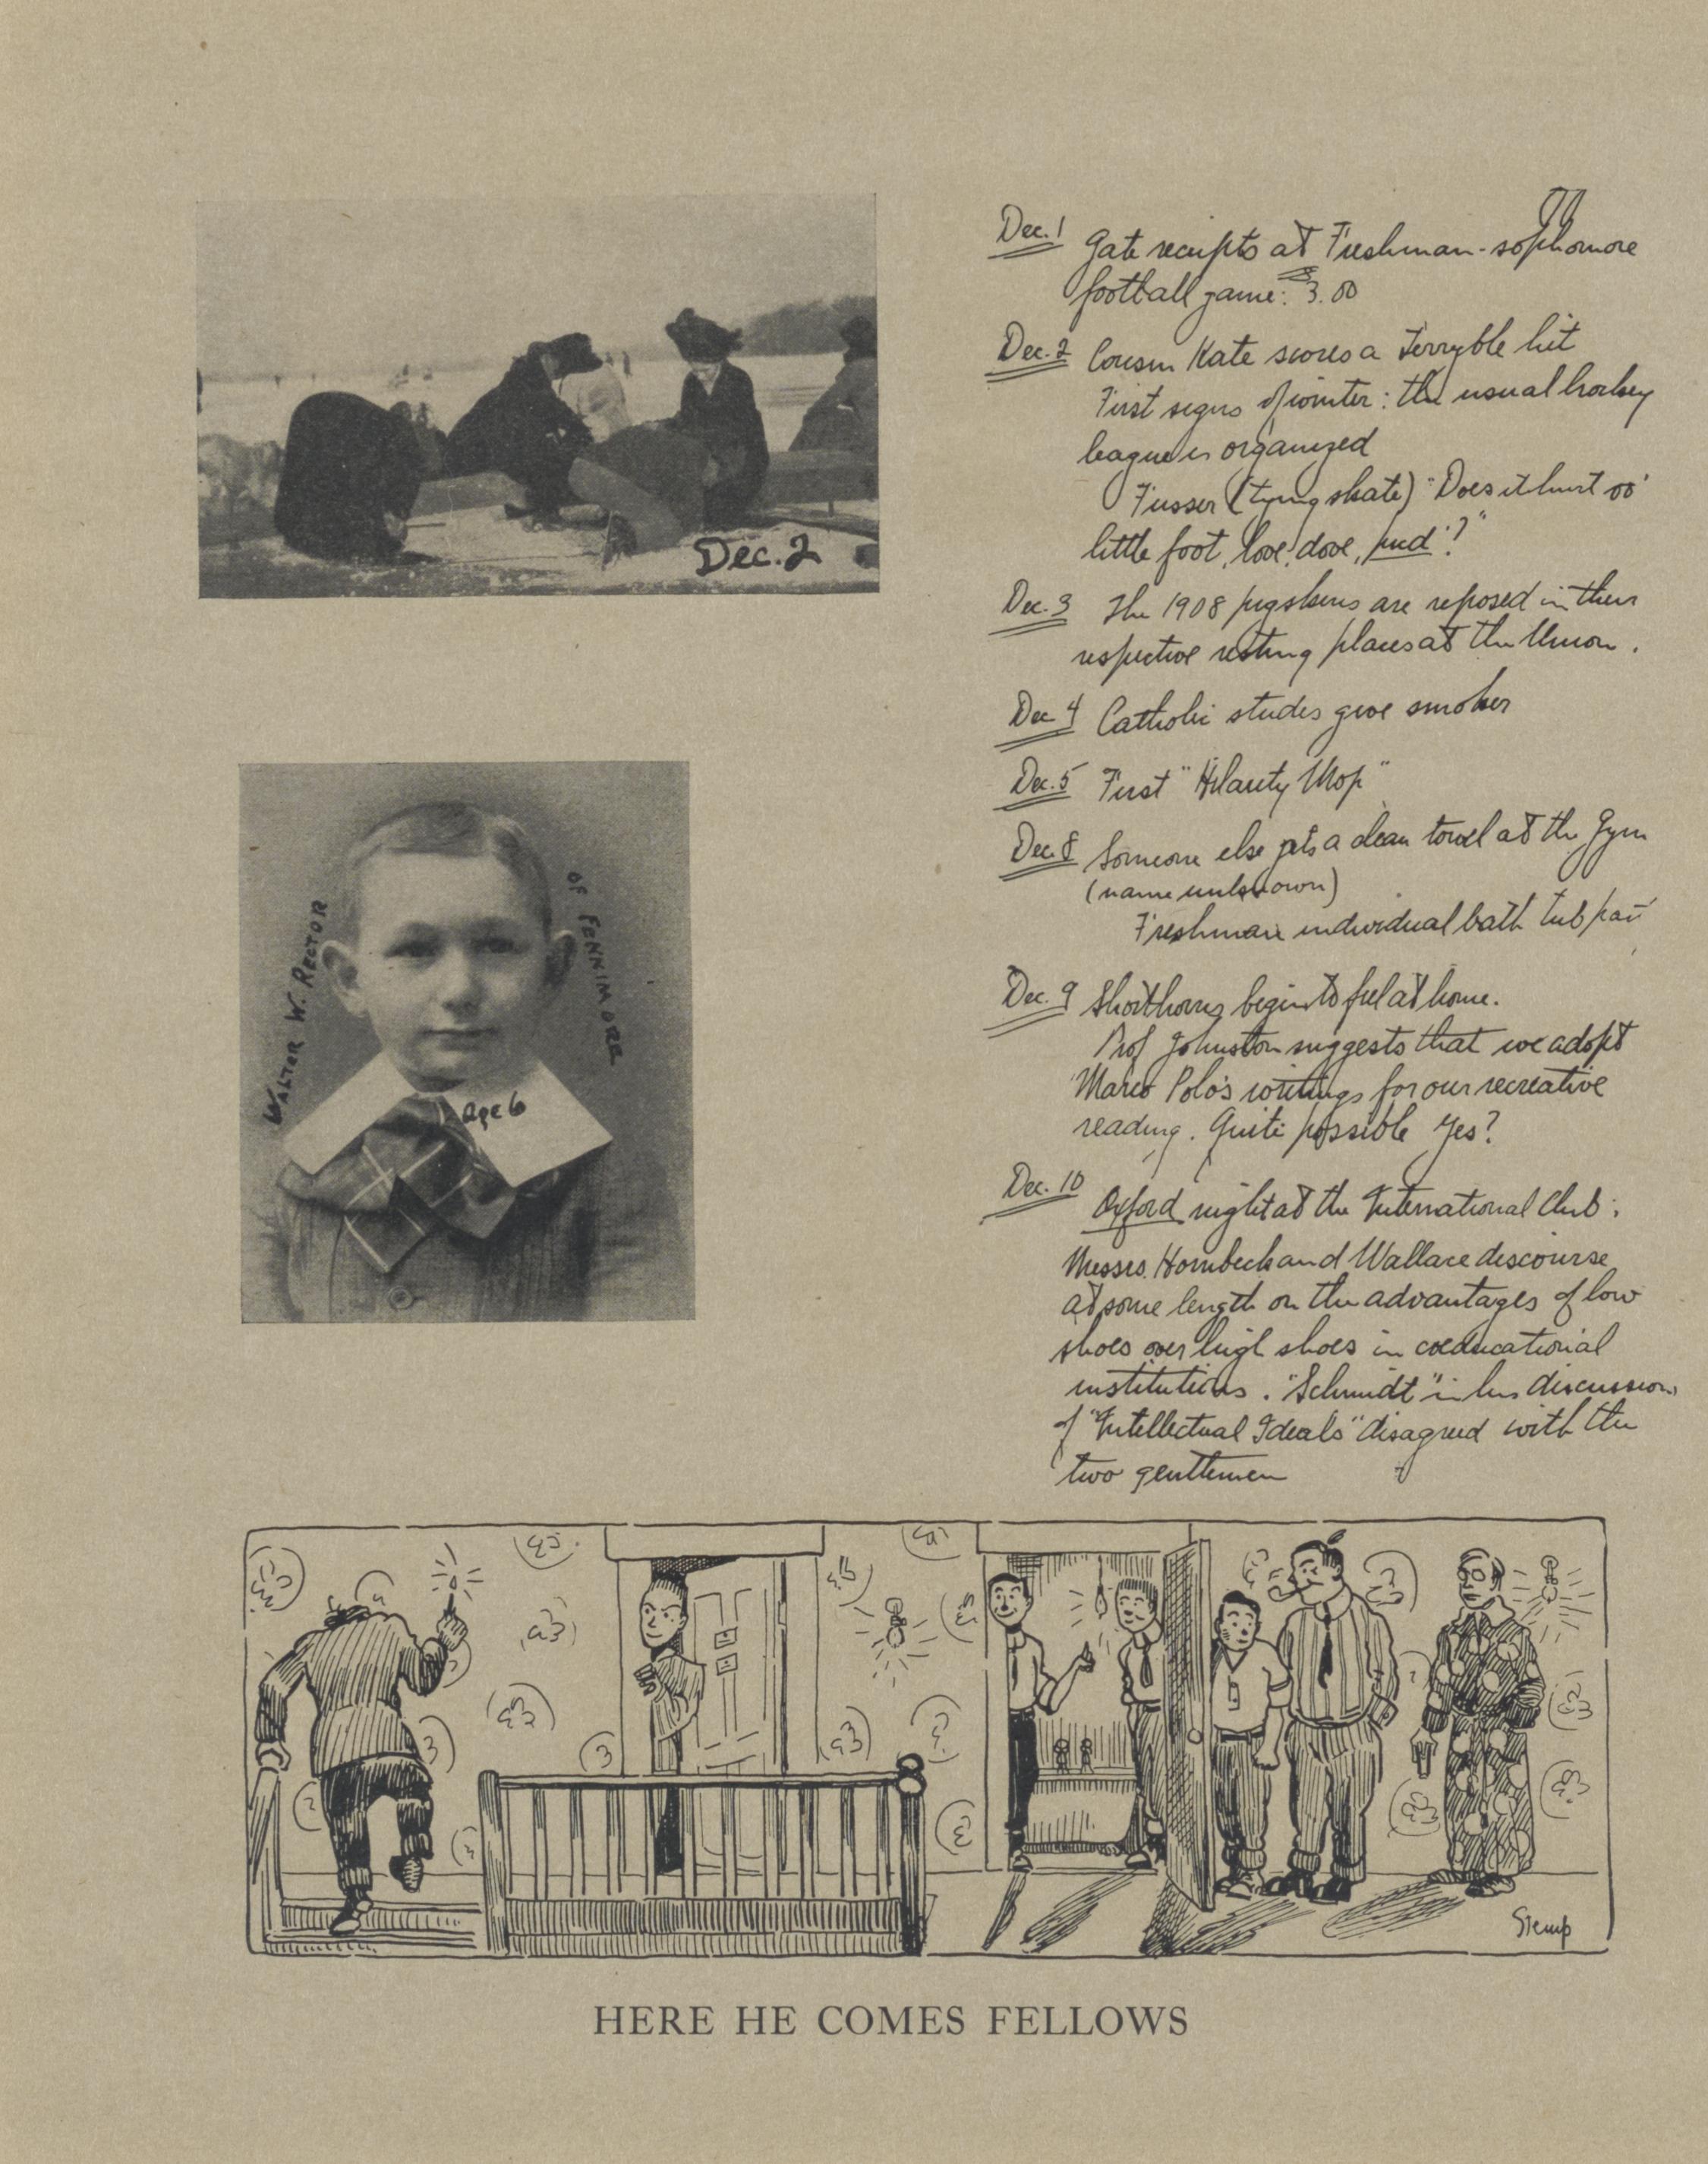 Dec. 1 Gate receipts at Freshman-sophomore
football game: $3.00
Dec. 2 Cousin Kate scores a Terryble hit
First signs of winter: the usual hockey
league is organized
Fusser (tying skate) "Does it hurt oo'
little foot, love, dove,
Dec. 3 The 1908 pigskins are reposed in their
respective resting places at the Union.
Dec 4 Catholic studes give smoker
Dec. 5 First "Hilarity Hop"
Dec. 8 Someone else gets a clean towel at the Gym
(name unknown)
Freshman individual bath tub
Dec. 9 Shorthorns begin to feel at home.
Prof Johnston suggests that we adopt
Marco Polo's writings for our recreative
reading. Quite possible Yes?
Dec. 10 Oxford night at the International Club:
Messrs. Hornbeck and Wallace discourse
at some length on the advantages of low
shoes over high shoes in coeducational
institutions. "Schmidt" in his discussion
of "Intellectual Ideals" disagreed with the
two gentlemen
Dec. 2
WALTER W. RECTOR
OF FENNIMORE
Age 6
Stemp
HERE HE COMES FELLOWS